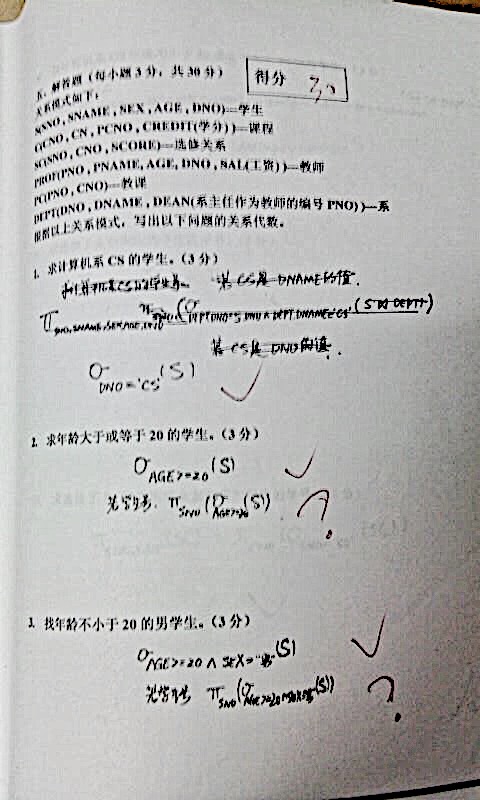 五、解答题（每小题3分，共30分）
得分 30
关系模式如下：
S(SNO, SNAME, SEX, AGE, DNO)—学生
C(CNO, CN, PCNO, CREDIT(学分))—课程
SC(SNO, CNO, SCORE)—选修关系
PROF(PNO, PNAME, AGE, DNO, SAL(工资))—教师
PC(PNO, CNO)—教课
DEPT(DNO, DNAME, DEAN(系主任作为教师的编号 PNO))—系
根据以上关系模式，写出以下问题的关系代数。
1. 求计算机系 CS 的学生。（3 分）
若CS是 DNAME的值.
π SNO,SNAME,SEX,AGE,DNO
(S⋈DEPT)
若CS是 DNO的值.
σ DNO='CS' (S)
2. 求年龄大于或等于 20 的学生。（3 分）
σ AGE>=20 (S)
π SNO (σ AGE>=20 (S))
?
3. 找年龄不小于 20 的男学生。（3 分）
σ AGE>=20 ∧ SEX="男" (S)
π SNO (σ AGE>=20∧SEX=男 (S))
?